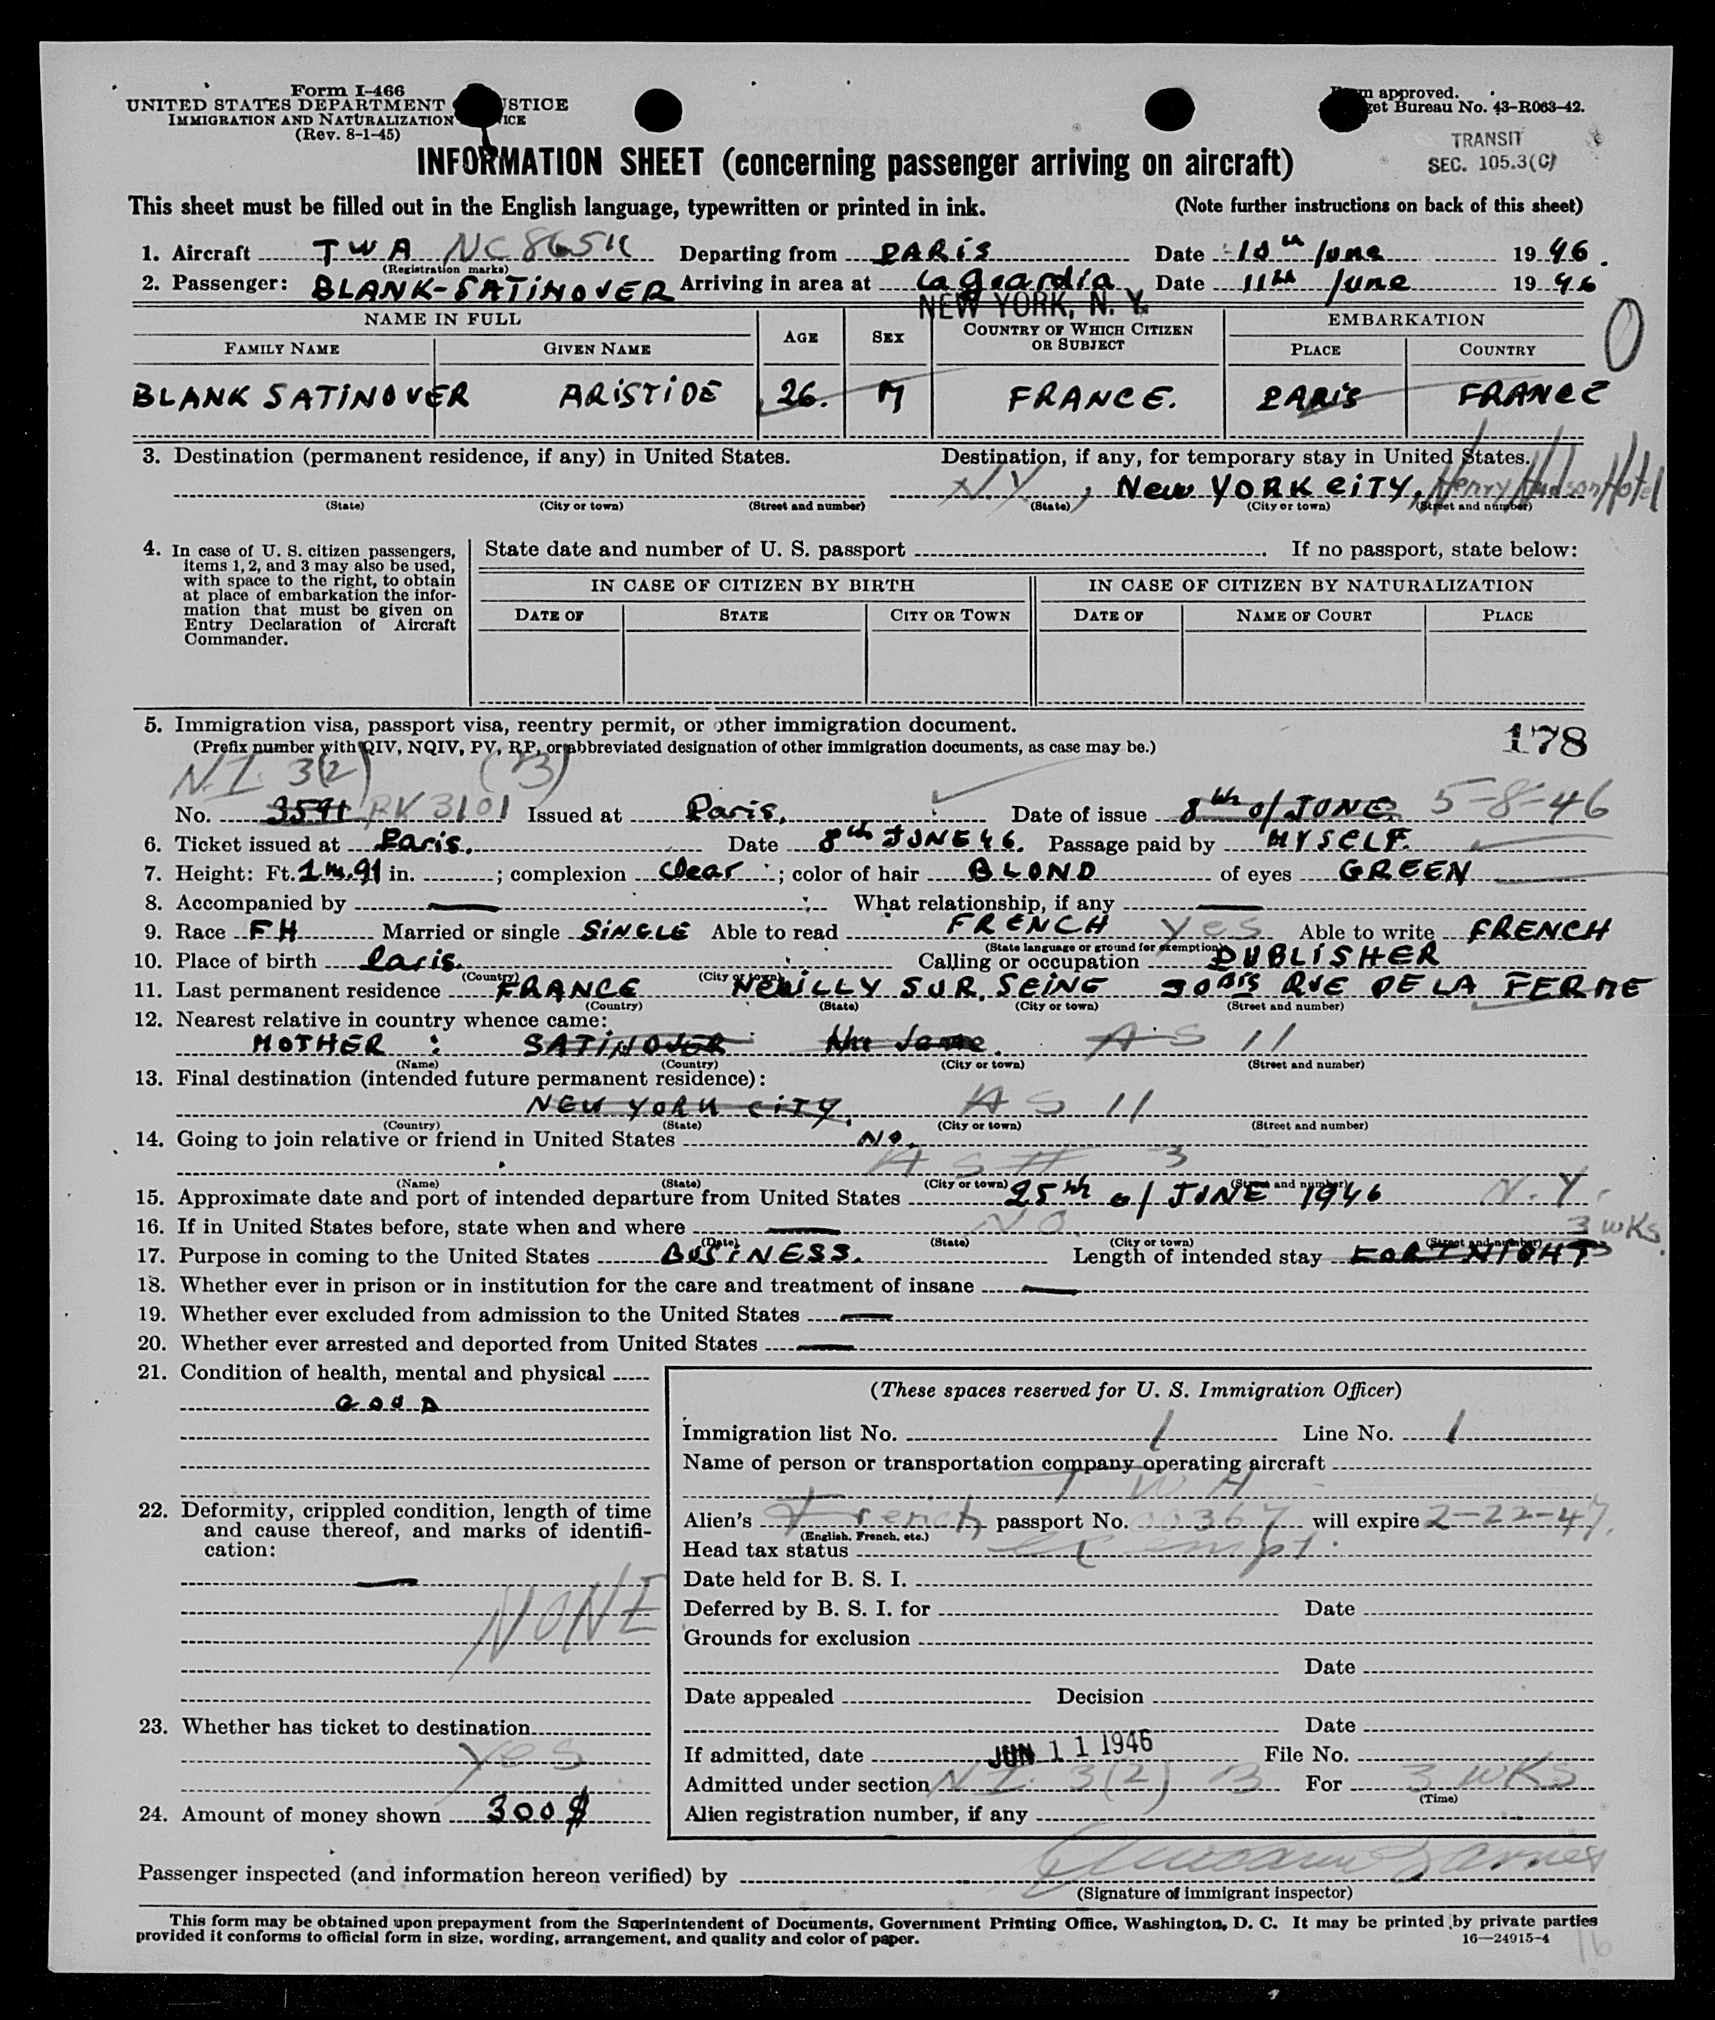 Form I-466
UNITED STATES DEPARTMENT JUSTICE
IMMIGRATION AND NATURALIZATION SERVICE
(Rev. 8-1-45)
Form approved.
Budget Bureau No. 43-R063-42.
TRANSIT
SEC. 105.3(C)
INFORMATION SHEET (concerning passenger arriving on aircraft)
This sheet must be filled out in the English language, typewritten or printed in ink. (Note further instructions on back of this sheet)
1. Aircraft TWA Departing from PARIS Date 10th June 1946.
(Registration marks)
2. Passenger: BLANK-SATINOVER Arriving in area at La Guardia Date 11th June 1946
NEW YORK, N. Y.
NAME IN FULL AGE SEX COUNTRY OF WHICH CITIZEN OR SUBJECT EMBARKATION
FAMILY NAME GIVEN NAME PLACE COUNTRY
BLANK SATINOVER ARISTIDE 26. M FRANCE. PARIS FRANCE
3. Destination (permanent residence, if any) in United States. Destination, if any, for temporary stay in United States.
N.Y., NEW YORK CITY, Henry Hudson Hotel
(State) (City or town) (Street and number) (State) (City or town) (Street and number)
4. In case of U. S. citizen passengers, items 1, 2, and 3 may also be used, with space to the right, to obtain at place of embarkation the information that must be given on Entry Declaration of Aircraft Commander.
State date and number of U. S. passport . If no passport, state below:
IN CASE OF CITIZEN BY BIRTH IN CASE OF CITIZEN BY NATURALIZATION
DATE OF STATE CITY OR TOWN DATE OF NAME OF COURT PLACE
5. Immigration visa, passport visa, reentry permit, or other immigration document.
(Prefix number with QIV, NQIV, PV, RP, or abbreviated designation of other immigration documents, as case may be.)
178
N.I. 3(2)
No. 3591 3101 Issued at Paris, Date of issue 8th of JUNE 5-8-46
6. Ticket issued at Paris. Date 8th JUNE 46. Passage paid by MYSELF.
7. Height: Ft. 1m.91 in. ; complexion clear ; color of hair BLOND of eyes GREEN
8. Accompanied by — What relationship, if any —
9. Race FH Married or single SINGLE Able to read FRENCH yes Able to write FRENCH
(State language or ground for exemption)
10. Place of birth Paris. Calling or occupation PUBLISHER
(Country) (City or town)
11. Last permanent residence FRANCE NEUILLY SUR SEINE 30 BIS RUE DE LA FERME
(Country) (State) (City or town) (Street and number)
12. Nearest relative in country whence came:
MOTHER : SATINOVER AS 11
(Name) (Country) (City or town) (Street and number)
13. Final destination (intended future permanent residence):
NEW YORK CITY. AS 11
(Country) (State) (City or town) (Street and number)
14. Going to join relative or friend in United States NO.
AS # 3
(Name) (State) (City or town) (Street and number)
15. Approximate date and port of intended departure from United States 25th of JUNE 1946 N.Y.
16. If in United States before, state when and where — NO
(Date) (State) (City or town) (Street and number)
3 wks.
17. Purpose in coming to the United States BUSINESS. Length of intended stay FORTNIGHT
18. Whether ever in prison or in institution for the care and treatment of insane —
19. Whether ever excluded from admission to the United States —
20. Whether ever arrested and deported from United States —
21. Condition of health, mental and physical
GOOD
22. Deformity, crippled condition, length of time and cause thereof, and marks of identification:
—
NONE
23. Whether has ticket to destination
yes
24. Amount of money shown 300$
(These spaces reserved for U. S. Immigration Officer)
Immigration list No. 1 Line No. 1
Name of person or transportation company operating aircraft
TWA
Alien's French passport No. 00367 will expire 2-22-47.
(English, French, etc.)
Head tax status exempt.
Date held for B. S. I.
Deferred by B. S. I. for Date
Grounds for exclusion
Date
Date appealed Decision
Date
If admitted, date JUN 11 1946 File No.
Admitted under section N.I. 3(2) For 3 WKS
(Time)
Alien registration number, if any
Passenger inspected (and information hereon verified) by
(Signature of immigrant inspector)
This form may be obtained upon prepayment from the Superintendent of Documents, Government Printing Office, Washington, D. C. It may be printed by private parties
provided it conforms to official form in size, wording, arrangement, and quality and color of paper.
16—24915-4
16